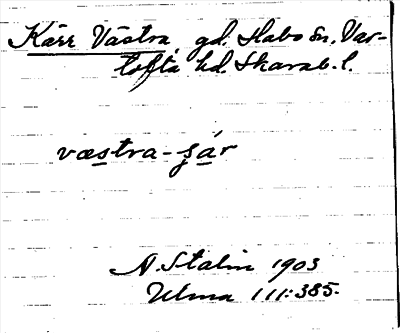 Kärr Västra, gd. Habo sn. Var-
tofta hd. Skarab. l.
væstra-ʂár
A. Stalin 1903
Ulma 111:385.